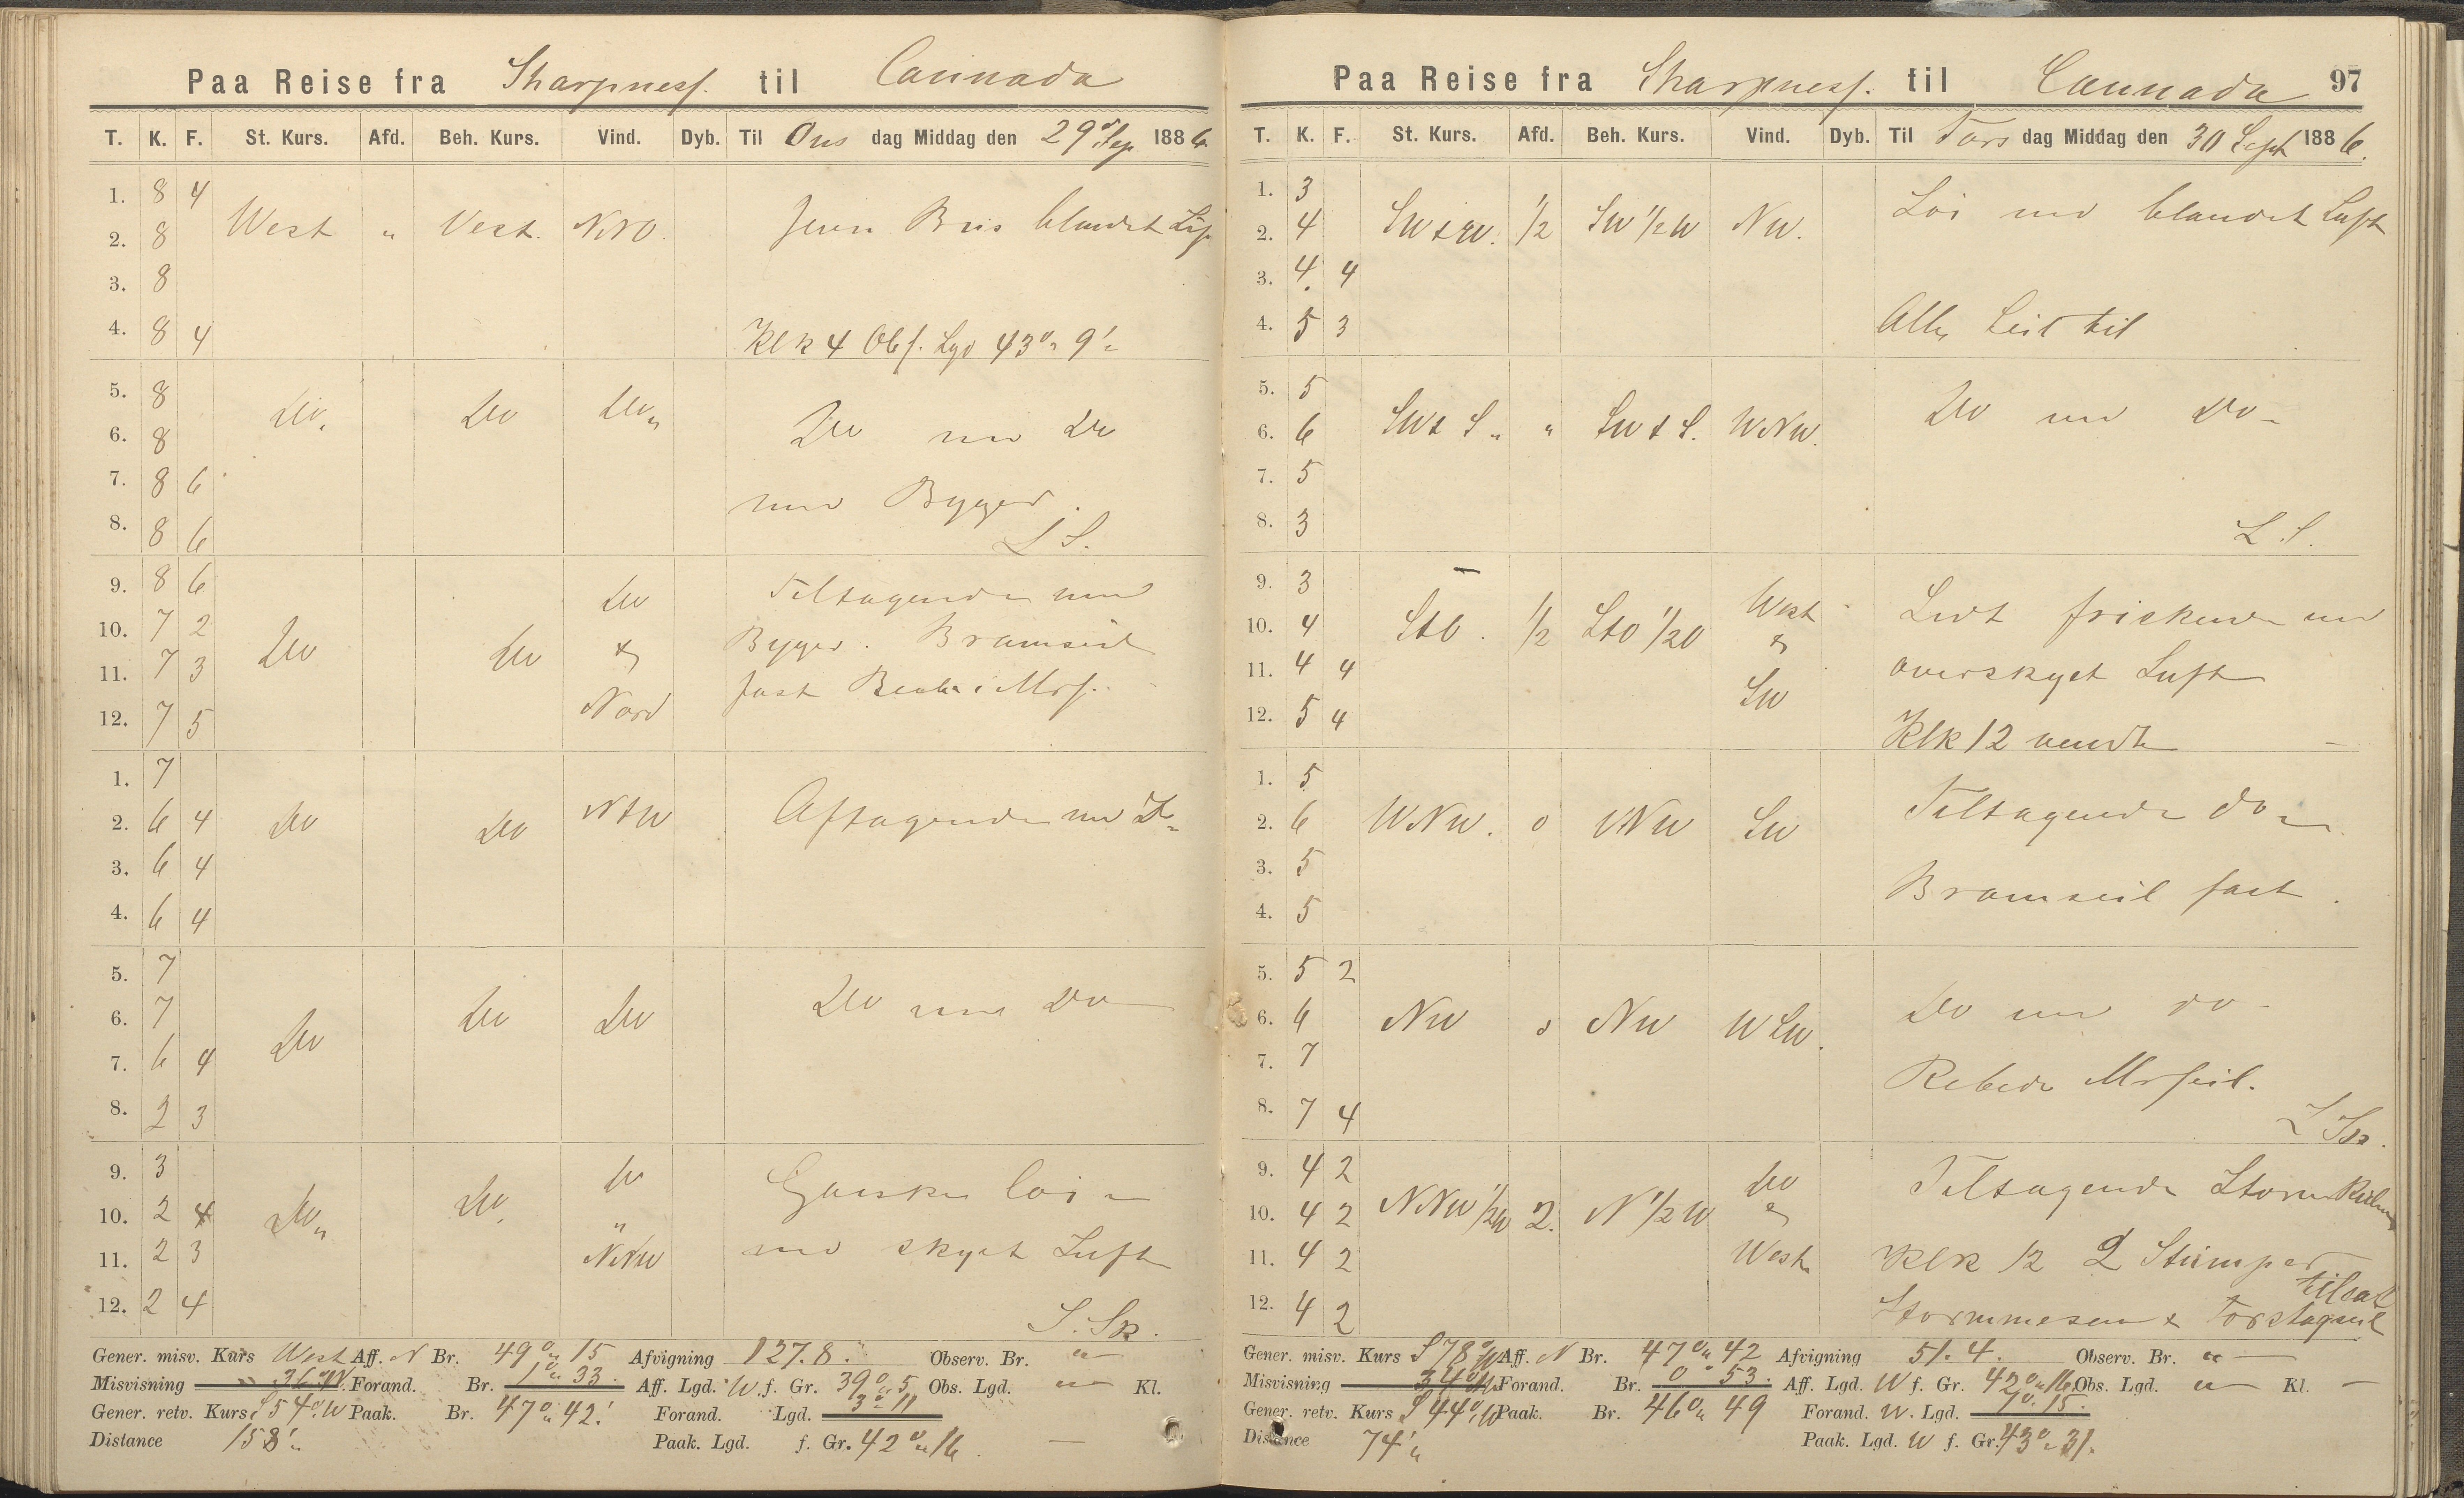 Paa Reise fra Sharpness. til Cannada
T. K. F. St. Kurs. Afd. Beh. Kurs. Vind. Dyb. Til Ons dag Middag den 29 Sep 1886
1. 8 4
2. 8 West " Vest. NNO. Jevn Bris blandet Luft
3. 8
4. 8 4 Klk 4 Obs. Lgd 43° 9'
5. 8
6. 8 Do. Do Do Do med Do
7. 8 6 med Byger.
8. 8 6 L S.
9. 8 6 Do Tiltagende med
10. 7 2 Do Do & Byger. Bramseil
11. 7 3 fast
12. 7 5 Nord
1. 7
2. 6 4 Do Do NtW Aftagende med Do
3. 6 4
4. 6 4
5. 7
6. 7 Do Do Do Do med Do
7. 6 4
8. 2 3
9. 3 Do Ganske løi
10. 2 4 Do Do "
11. 2 3 NNW med skyet Luft
12. 2 4 S. Sp.
Gener. misv. Kurs West Aff. N Br. 49° 15 Afvigning 127.8. Observ. Br. "
Misvisning 36° W. Forand. Br. 1° 33. Aff. Lgd. W. f. Gr. 39° 5 Obs. Lgd. " Kl.
Gener. retv. Kurs S 54° W Paak. Br. 47° 42.' Forand. Lgd. 3° 11
Distance 158' Paak. Lgd. f. Gr. 42° 16.
Paa Reise fra Sharpness. til Cannada 97
T. K. F. St. Kurs. Afd. Beh. Kurs. Vind. Dyb. Til Tors dag Middag den 30 Sept 1886.
1. 3
2. 4 SWtW. 1/2 SW 1/2 W NW. Løi med blandet Luft
3. 4 4
4. 5 3 Alle Seil til
5. 5
6. 6 SWtS " " SWtS. WNW. Do med Do
7. 5
8. 3 L. S.
9. 3
10. 4 StO. 1/2 StO 1/2 O West & Lidt friskende med
11. 4 4 SW overskyet Luft
12. 5 4 Klk 12 vendte
1. 5
2. 6 WNW. 0 WNW SW Tiltagende do
3. 5
4. 5 Bramseil fast.
5. 5 2
6. 6 NW 0 NW WSW. Do med do
7. 7 Rebede Mrseil.
8. 7 4 L Sp.
9. 4 2 Do
10. 4 2 NNW 1/2 W 2. N 1/2 W & Tiltagende Storm
11. 4 2 West Klk 12 2 Stumper
12. 4 2 tilsat
Stormmesan & Forstagseil
Gener. misv. Kurs S 78° W Aff. N Br. 47° 42 Afvigning 51.4. Observ. Br. "
Misvisning 34° W Forand. Br. 0° 53. Aff. Lgd. W f. Gr. 42° 16. Obs. Lgd. " Kl. —
Gener. retv. Kurs S 44° W Paak. Br. 46° 49 Forand. W. Lgd. 1° 15.
Distance 74' Paak. Lgd. W f. Gr. 43° 31.